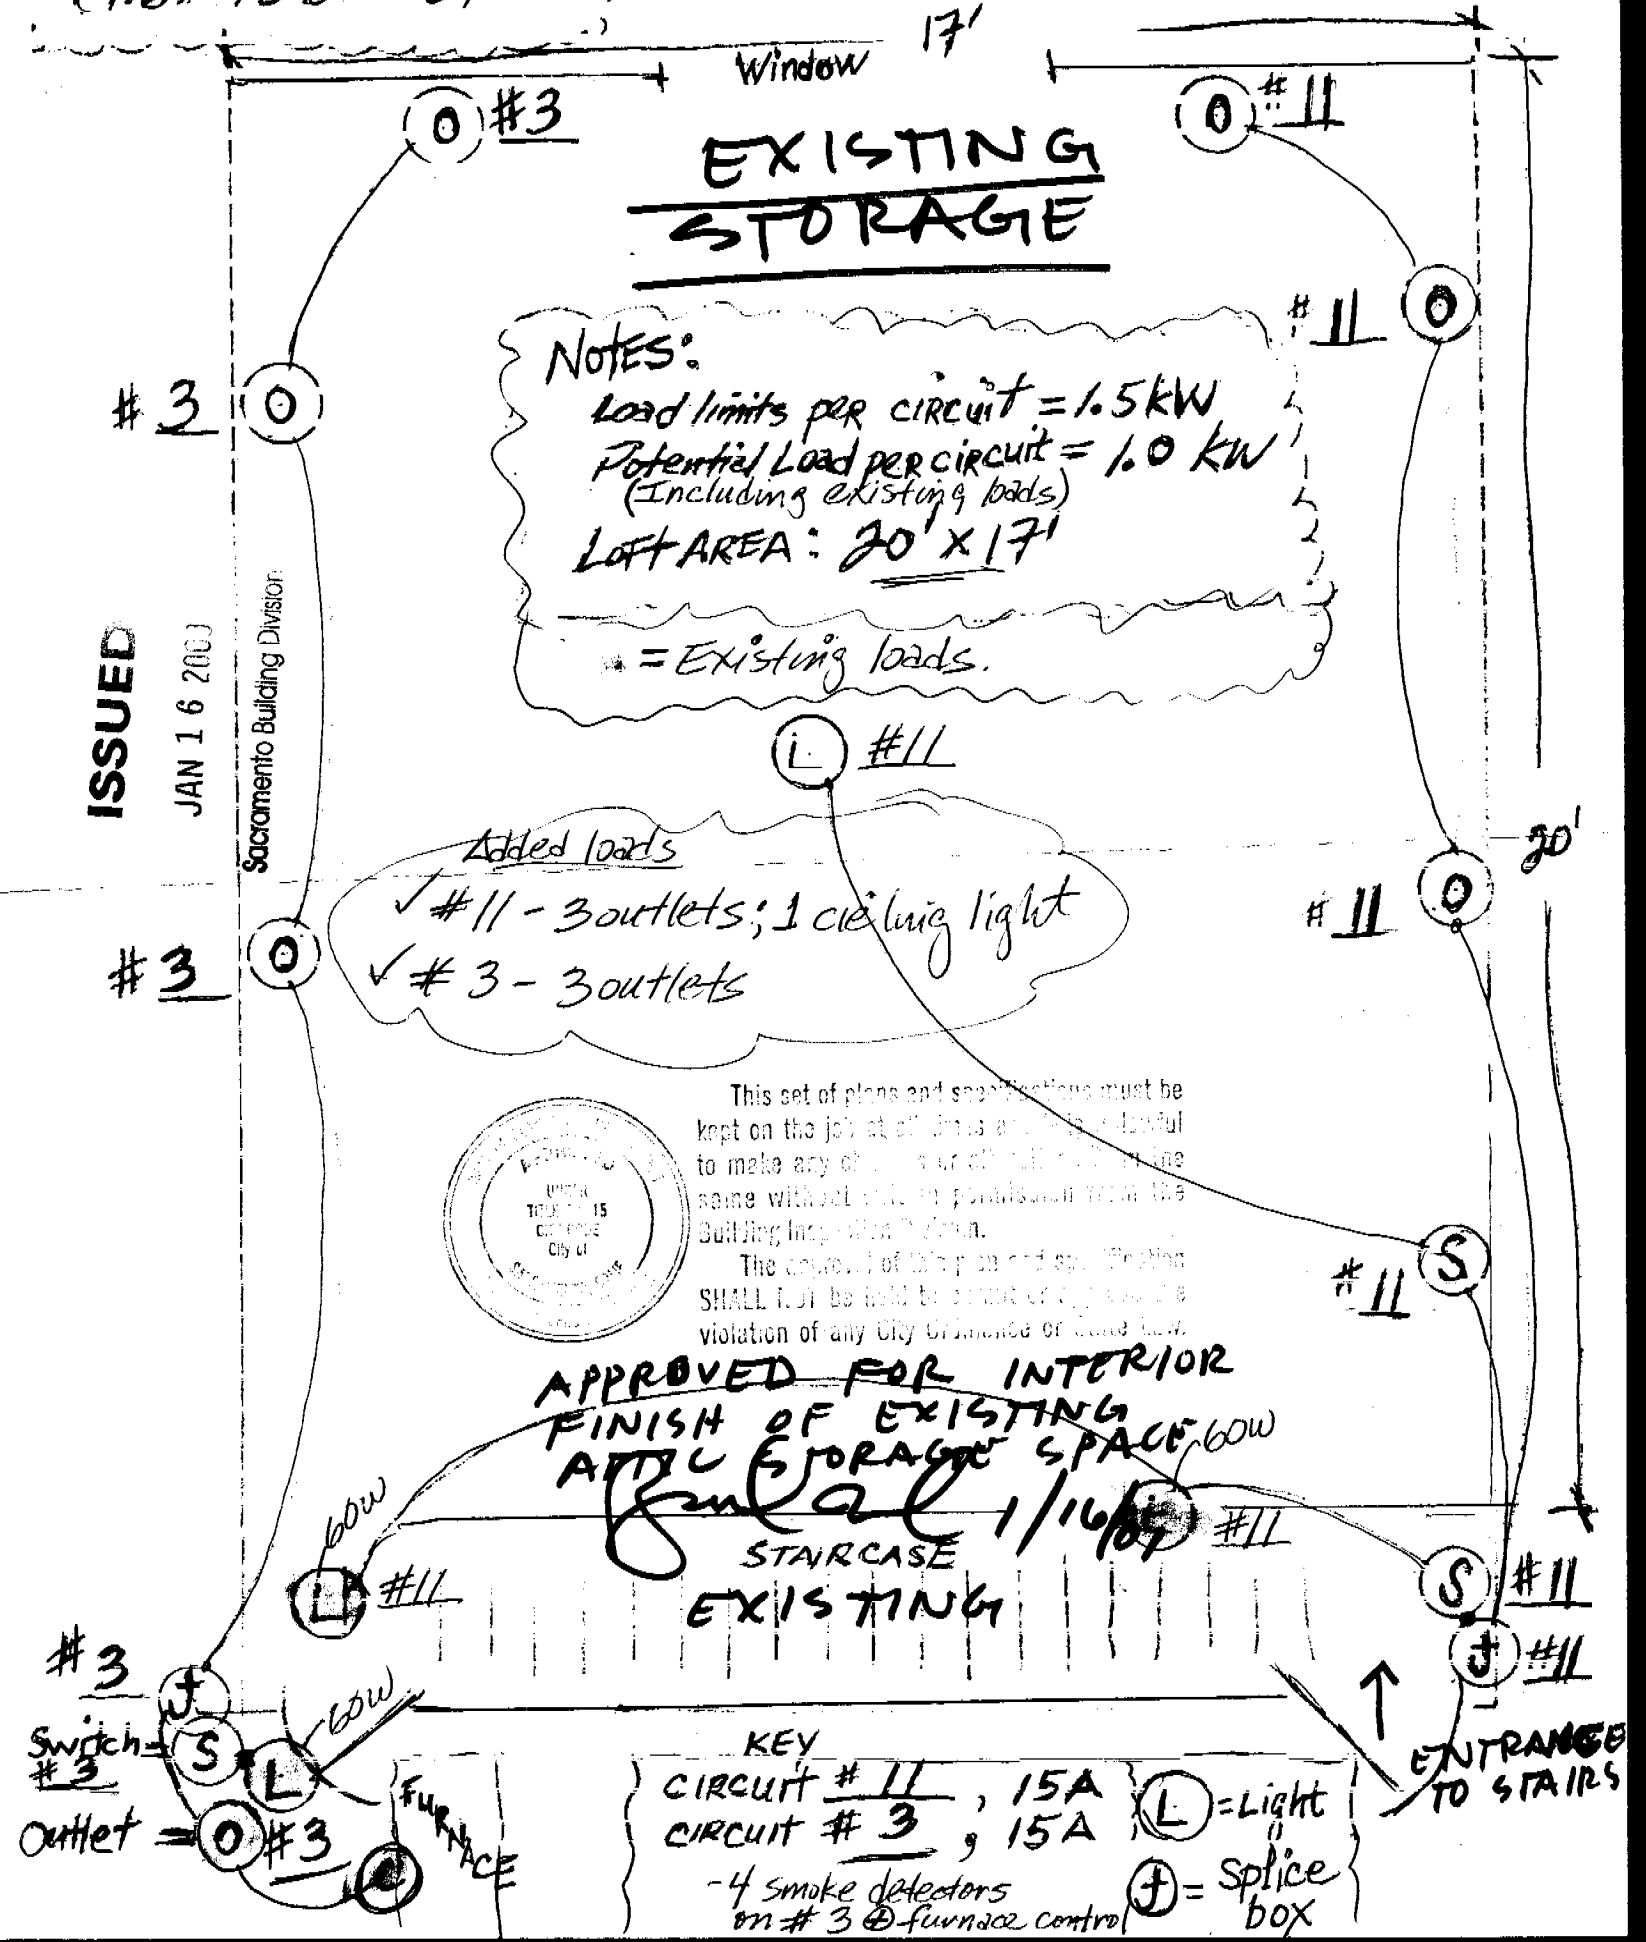 17'
Window
#3
#11
EXISTING
STORAGE
#11
NOTES:
Load limits per circuit = 1.5 kW
Potential Load per circuit = 1.0 kW
(Including existing loads)
LOFT AREA: 20' x 17'
= Existing loads.
#3
ISSUED
JAN 16
Sacramento Building Division
L #11
20'
Added loads
✓ #11 - 3 outlets; 1 cieling light
✓ # 3 - 3 outlets
#11
#3
This set of plans and specifications must be
kept on the job at all times
to make any
same without permission from the
Building Inspection Division.
The approval of this plan and specification
SHALL NOT be held to
violation of any City Ordinance or State Law.
City of
S
#11
APPROVED FOR INTERIOR
FINISH OF EXISTING
ATTIC STORAGE SPACE
60W
1/16/
#11
60W
L #11
STAIRCASE
EXISTING
S #11
J #11
#3
J
60W
Switch = S L
#3
Outlet = O #3
FURNACE
ENTRANCE
TO STAIRS
KEY
CIRCUIT # 11, 15A
CIRCUIT # 3, 15A
- 4 smoke detectors
on # 3 ⊕ furnace control
L = Light
J = Splice
box